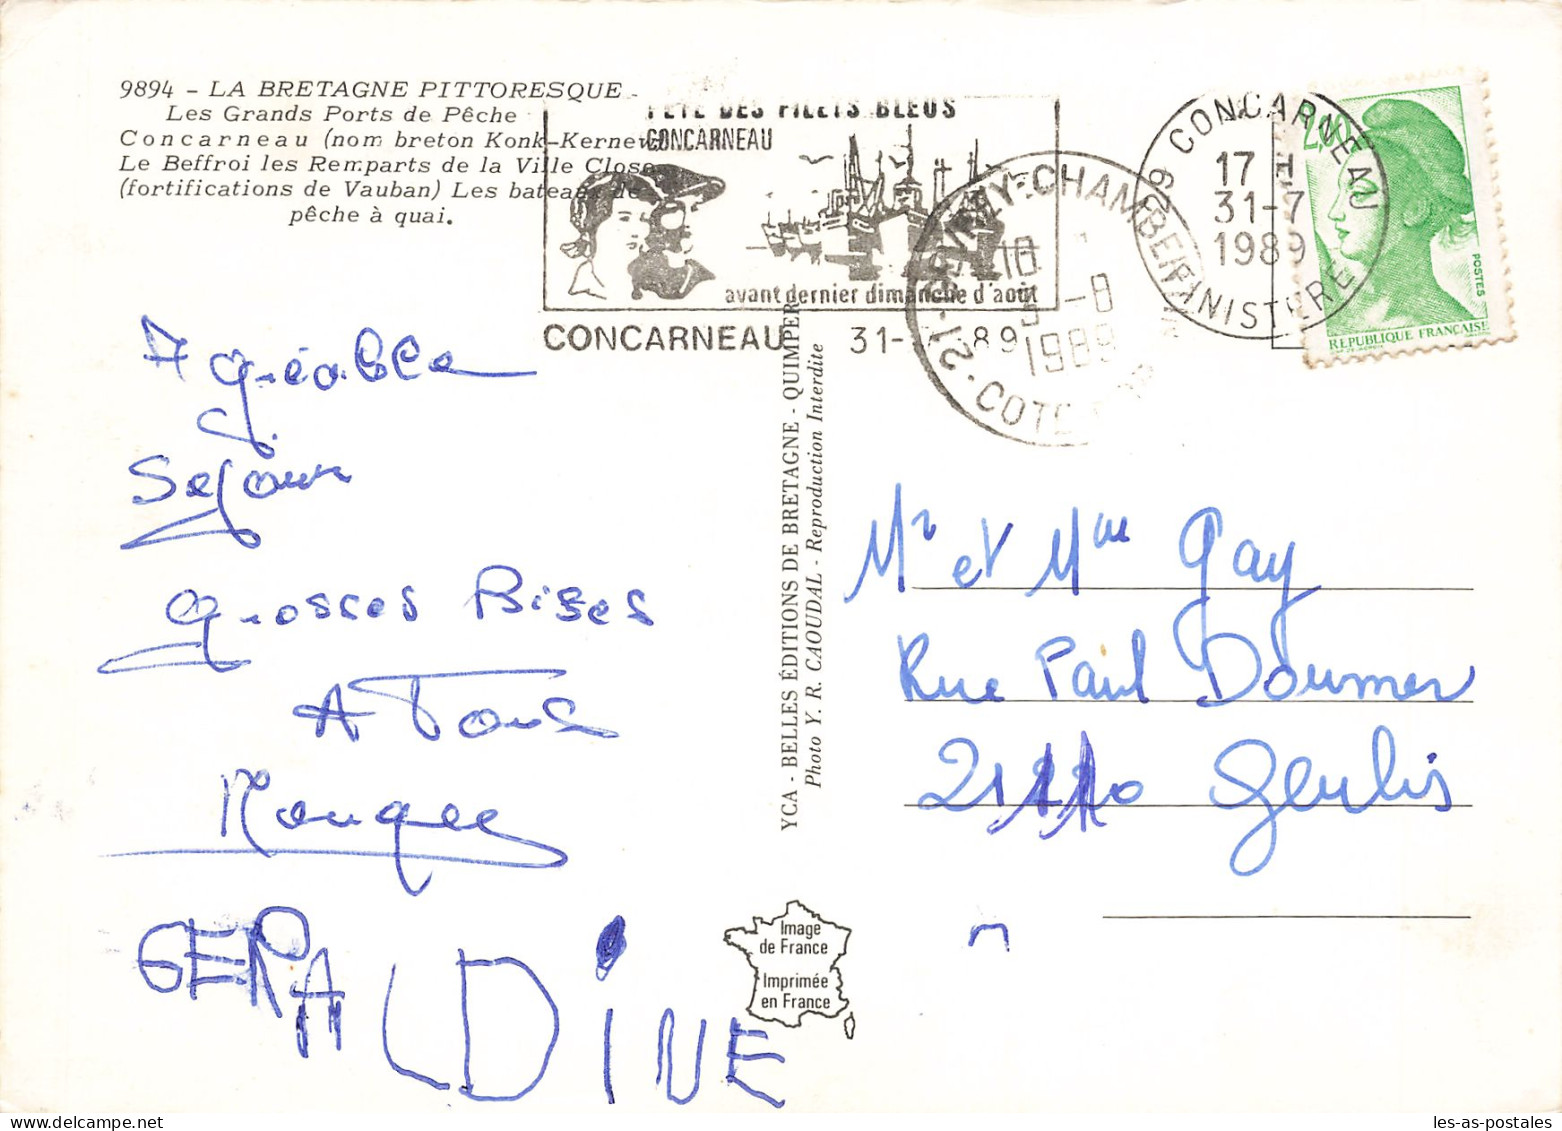 9894 - LA BRETAGNE PITTORESQUE -
Les Grands Ports de Pêche
Concarneau (nom breton Konk-Kernew)
Le Beffroi les Remparts de la Ville Close
(fortifications de Vauban) Les bateaux de
pêche à quai.
FETE DES FILETS BLEUS
CONCARNEAU
avant dernier dimanche d'août
CONCARNEAU 31-7-89
29 CONCARNEAU
17 H
31-7
1989
FINISTERE
GEVREY-CHAMBERTIN
18
-8
1989
21 - COTE
2,00
POSTES
REPUBLIQUE FRANÇAISE
Agréable
Sejour
grosses Bises
A Tous
GERALDINE
YCA - BELLES ÉDITIONS DE BRETAGNE - QUIMPER
Photo Y. R. CAOUDAL - Reproduction Interdite
Mr et Mme Gay
Rue Paul Doumer
21110 Genlis
Image
de France
Imprimée
en France
les-as-postales